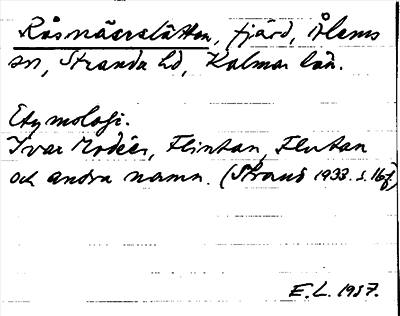 Råsnäsrslätten, fjärd, Ålems
sn, Stranda hd, Kalmar län.
Etymologi.
Ivar Modéer, Flintan, Flutan
och andra namn. (Strand 1933. s. 16f)
E.L. 1957.